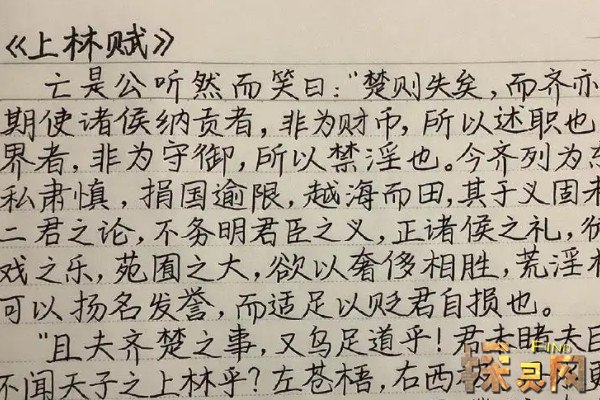 《上林赋》
亡是公听然而笑曰："楚则失矣，而齐亦
期使诸侯纳贡者，非为财币，所以述职也
界者，非为守御，所以禁淫也。今齐列为东
私肃慎，捐国逾限，越海而田，其于义固未
二君之论，不务明君臣之义，正诸侯之礼，
戏之乐，苑囿之大，欲以奢侈相胜，荒淫相
可以扬名发誉，而适足以贬君自损也。
"且夫齐楚之事，又乌足道乎！君未睹夫巨
不闻天子之上林乎？左苍梧，右西极
FIND
探灵网